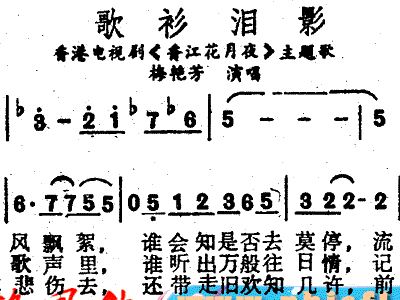 歌衫泪影
香港电视剧《香江花月夜》主题歌
梅艳芳 演唱
| ♭3 - 2 1 ♭7 ♭6 | 5 - - - | 5
| 6· 7 7 5 5 | 0 5 1 2 3 6 5 | 3 2 2 - 2
风飘絮, 谁会知是否去莫停, 流
歌声里, 谁听出万般往日情, 记
悲伤去, 还带走旧欢知几许, 前